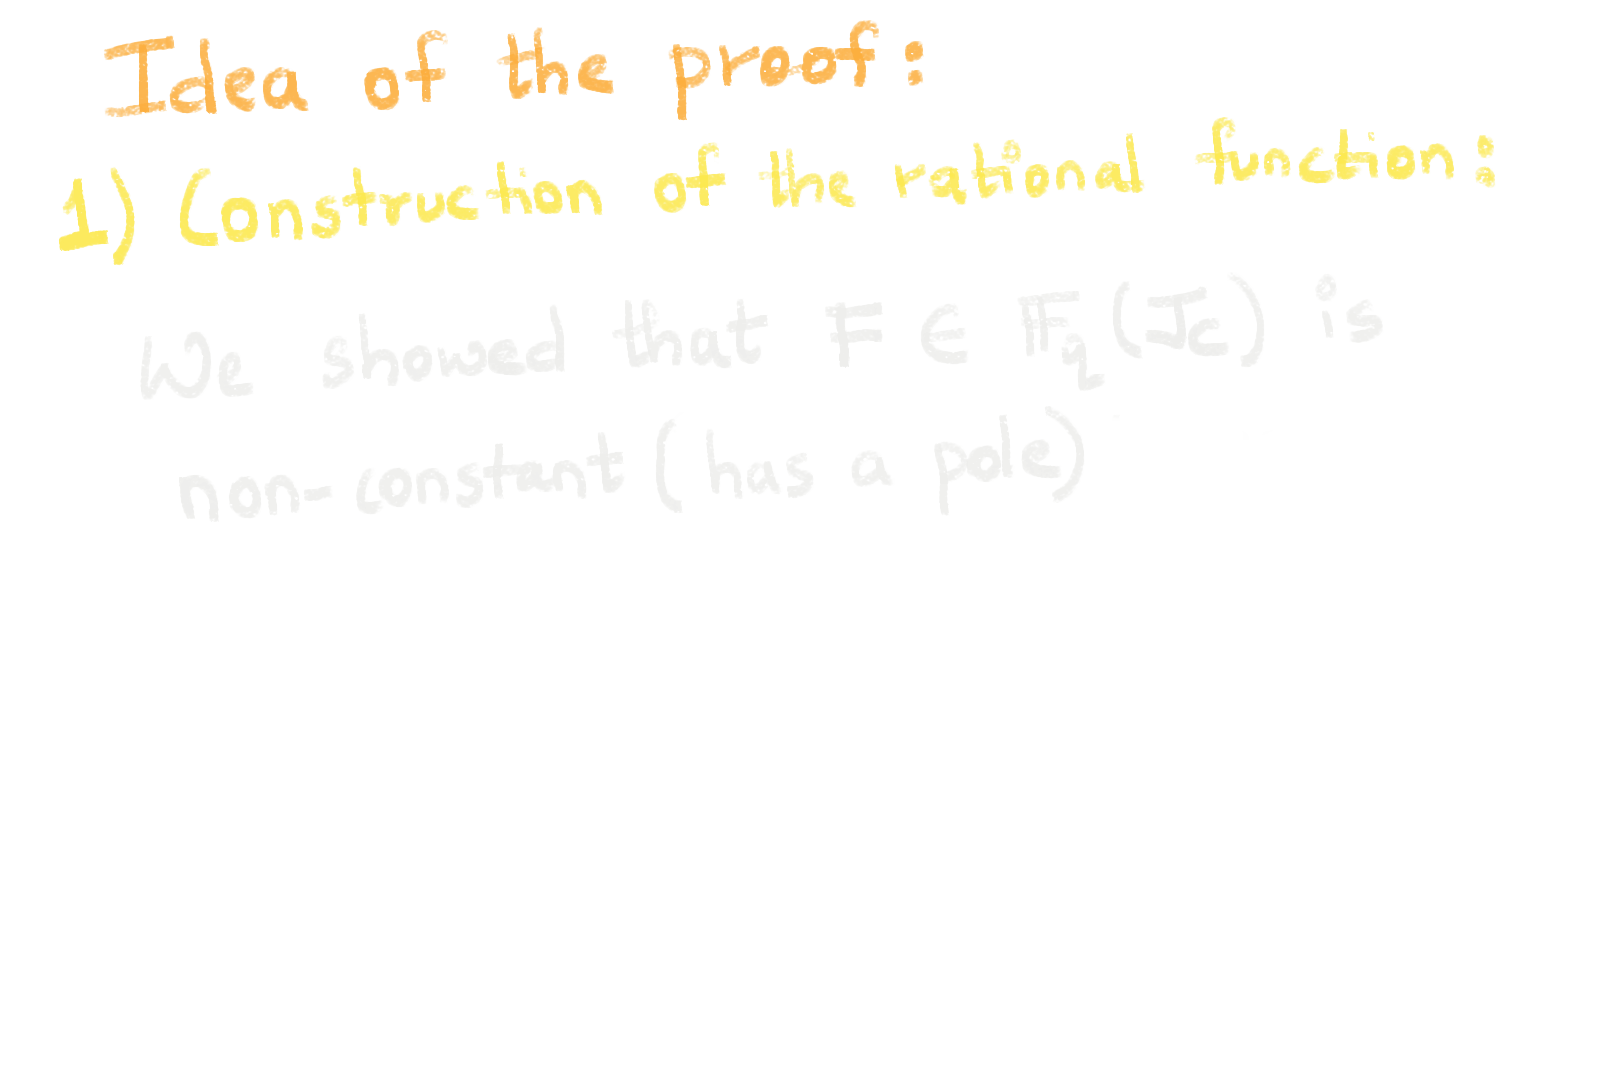 Idea of the proof:
1) Construction of the rational function:
We showed that F ∈ 𝔽_q(J_C) is
non-constant (has a pole)